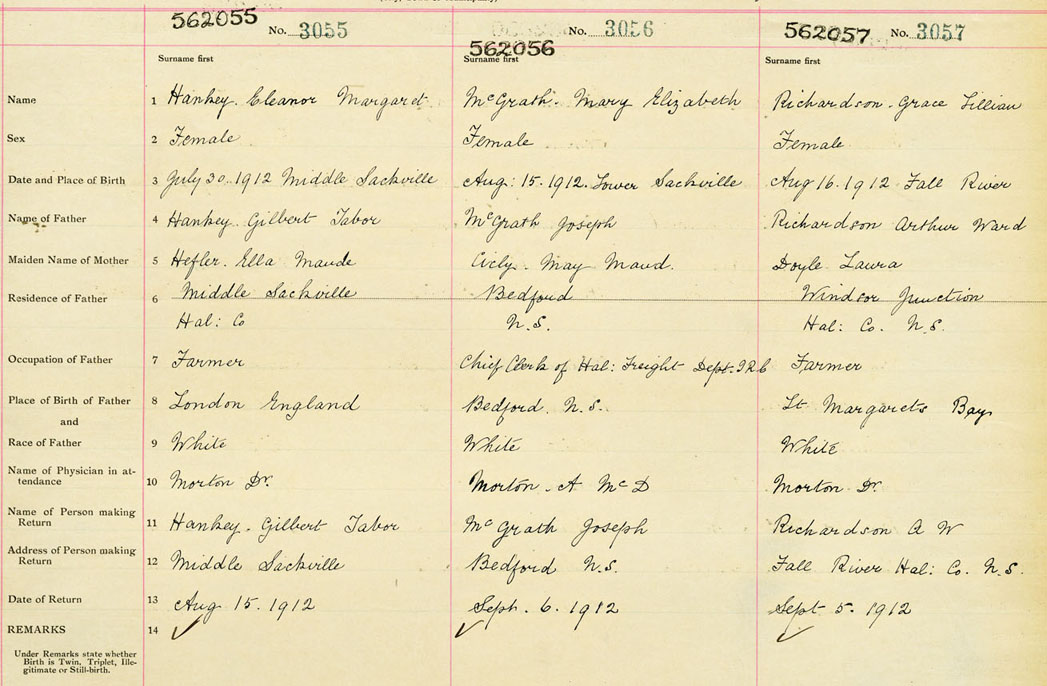 562055 No. 3055 562056 No. 3056 562057 No. 3057
Surname first Surname first Surname first
Name 1 Hankey. Eleanor Margaret McGrath. Mary Elizabeth Richardson. Grace Lillian
Sex 2 Female Female Female
Date and Place of Birth 3 July 30. 1912 Middle Sackville Aug: 15. 1912. Lower Sackville Aug 16. 1912 Fall River
Name of Father 4 Hankey. Gilbert Tabor McGrath Joseph Richardson Arthur Ward
Maiden Name of Mother 5 Hefler. Ella Maude May Maud. Doyle Laura
Residence of Father 6 Middle Sackville Bedford Windsor Junction
Hal: Co N.S. Hal: Co. N.S.
Occupation of Father 7 Farmer Chief Clerk of Hal: Freight Dept. Farmer
Place of Birth of Father 8 London England Bedford. N.S. St Margarets Bay
and
Race of Father 9 White White White
Name of Physician in at-
tendance 10 Morton Dr. Morton. A McD Morton. Dr.
Name of Person making
Return 11 Hankey. Gilbert Tabor McGrath Joseph Richardson A W
Address of Person making
Return 12 Middle Sackville Bedford N.S. Fall River Hal: Co. N.S.
Date of Return 13 Aug 15. 1912 Sept. 6. 1912 Sept 5. 1912
REMARKS 14 ✓ ✓ ✓
Under Remarks state whether
Birth is Twin, Triplet, Ille-
gitimate or Still-birth.